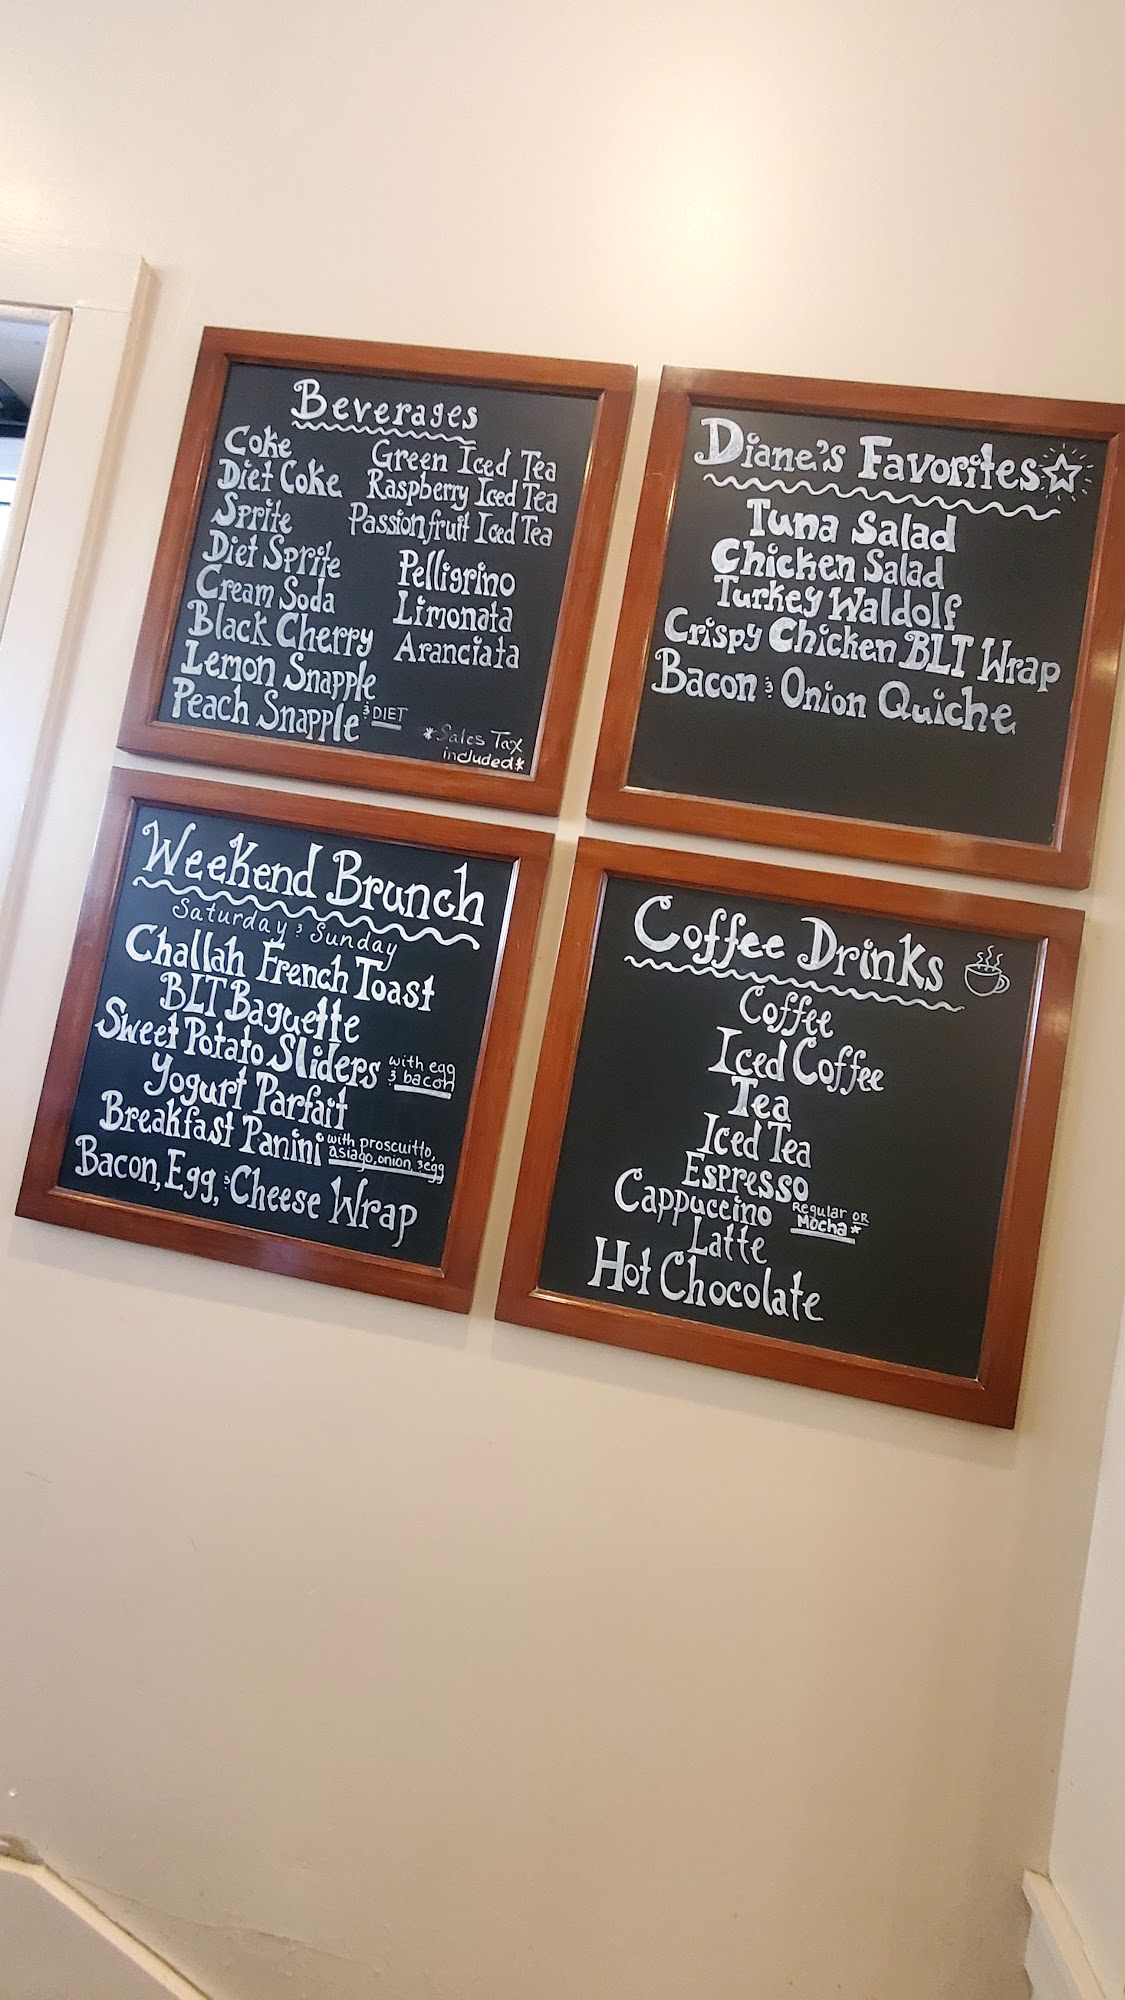 Beverages
Coke
Diet Coke
Sprite
Diet Sprite
Cream Soda
Black Cherry
Lemon Snapple
Peach Snapple & DIET
Green Iced Tea
Raspberry Iced Tea
Passionfruit Iced Tea
Pelligrino
Limonata
Aranciata
*Sales Tax
included*
Diane's Favorites
Tuna Salad
Chicken Salad
Turkey Waldolf
Crispy Chicken BLT Wrap
Bacon & Onion Quiche
Weekend Brunch
Saturday & Sunday
Challah French Toast
BLT Baguette
Sweet Potato Sliders with egg
& bacon
Yogurt Parfait
Breakfast Panini with proscuitto,
asiago, onion, & egg
Bacon, Egg, & Cheese Wrap
Coffee Drinks
Coffee
Iced Coffee
Tea
Iced Tea
Espresso
Cappuccino Regular OR
Mocha*
Latte
Hot Chocolate